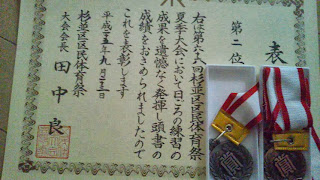 表
第二位
右は第六八回杉並区区民体育祭
夏季大会において日ごろの練習の
成果を遺憾なく発揮し頭書の
成績をおさめられましたので
これを表彰します
平成二十五年九月二十三日
杉並区区民体育祭
大会会長 田中良